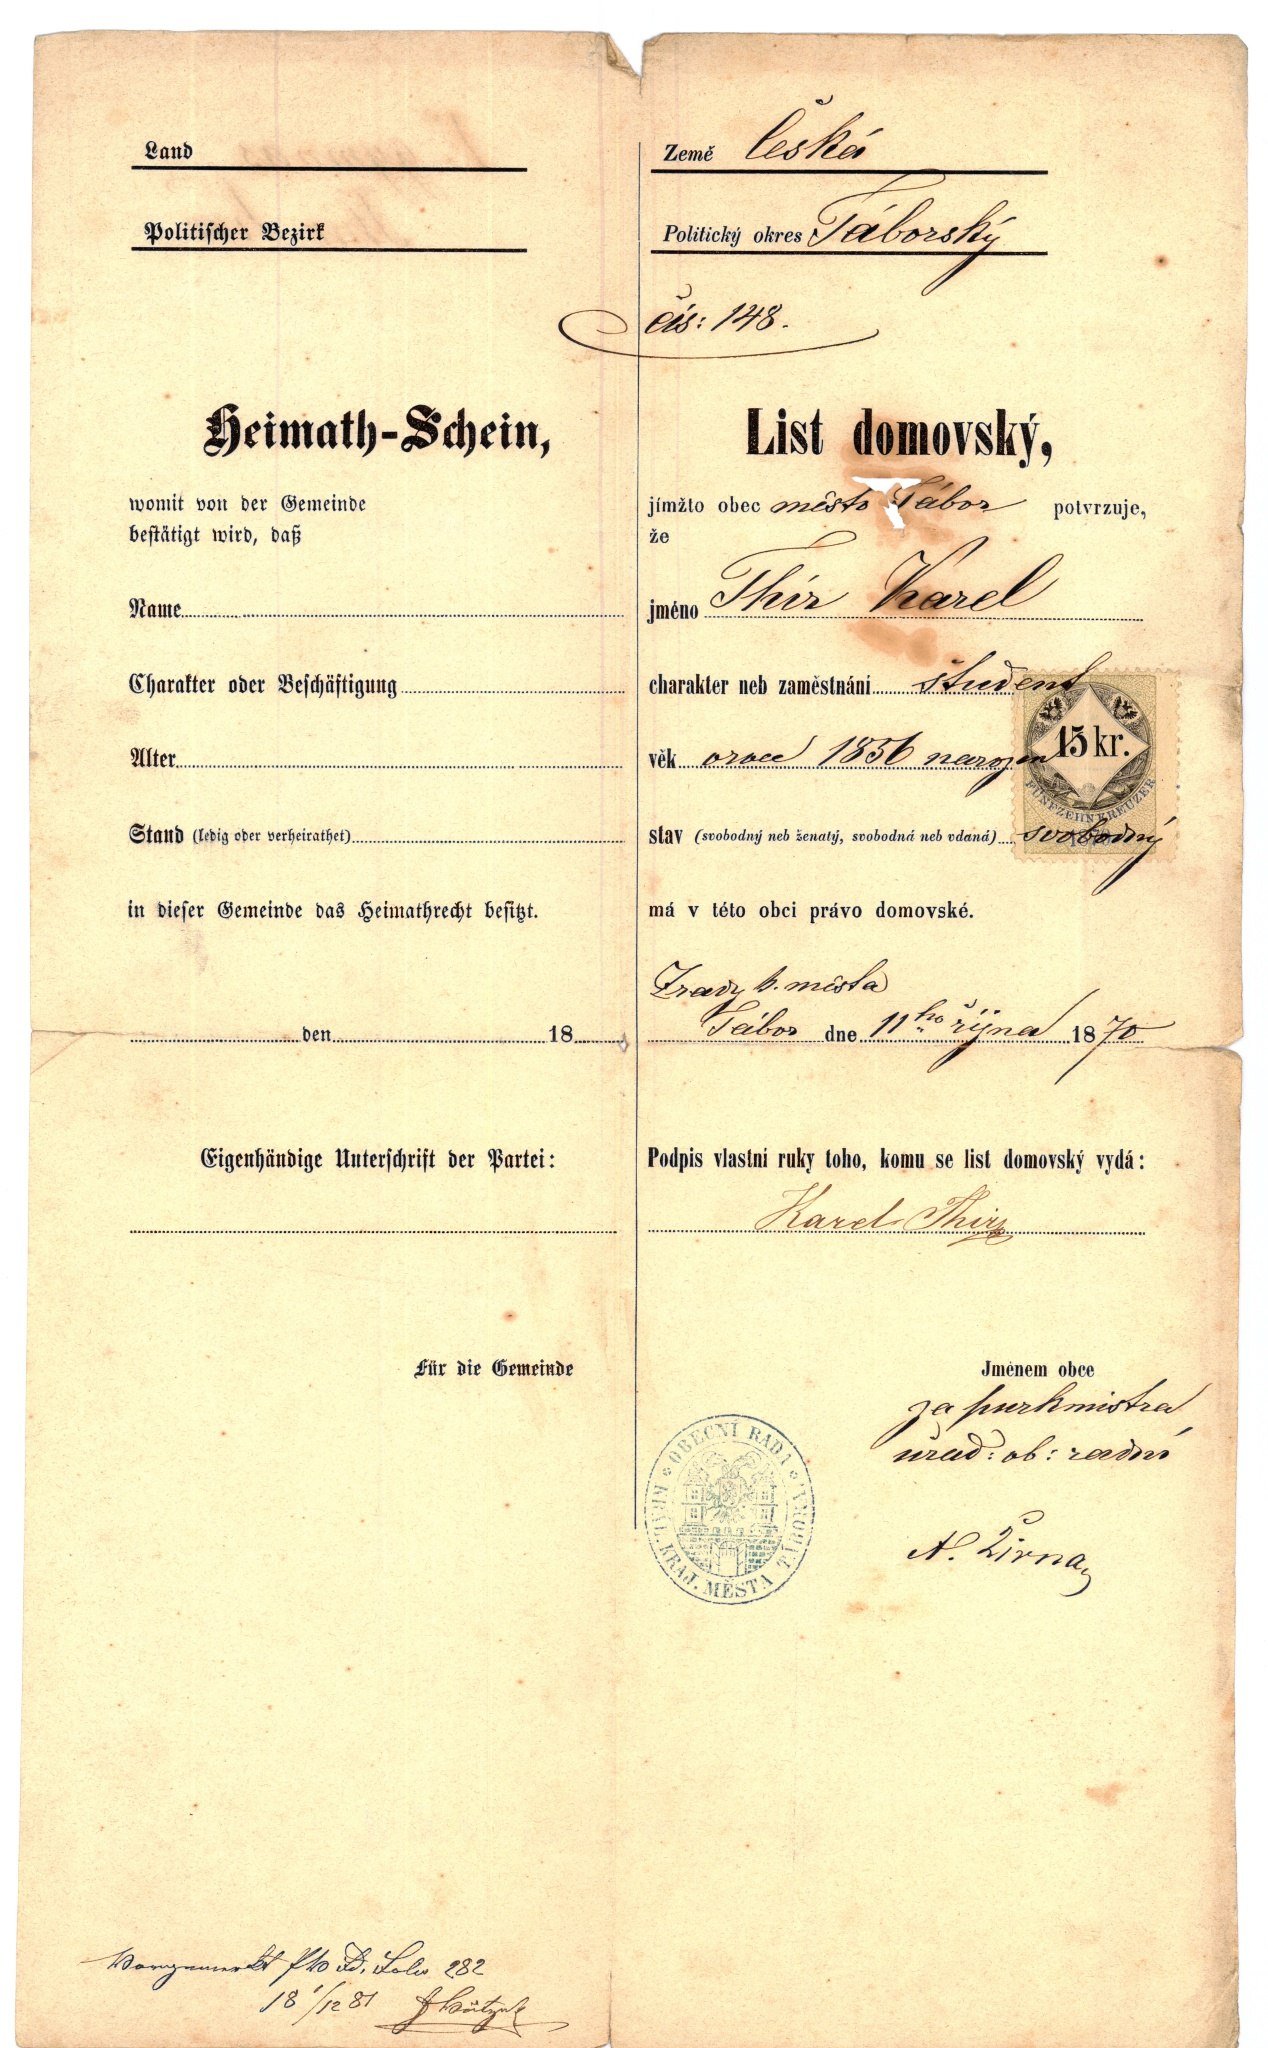 Land
Politischer Bezirk
Země Česká
Politický okres Táborský
čís: 148.
Heimath-Schein,
womit von der Gemeinde
bestätigt wird, daß
Name
Charakter oder Beschäftigung
Alter
Stand (ledig oder verheirathet)
in dieser Gemeinde das Heimathrecht besitzt.
den 18
Eigenhändige Unterschrift der Partei:
Für die Gemeinde
List domovský,
jímžto obec město Tábor potvrzuje,
že
jméno Thir Karel
charakter neb zaměstnání študent
věk 1856 narozen
stav (svobodný neb ženatý, svobodná neb vdaná) svobodný
15 kr.
FÜNFZEHN KREUZER
má v této obci právo domovské.
města
Tábor dne 11ho října 1870
Podpis vlastní ruky toho, komu se list domovský vydá:
Karel Thir
Jménem obce
za purkmistra
úřad: ob: radní
OBECNÍ RADA
KRAJ. MĚSTA TÁBORA
282
18/12 81